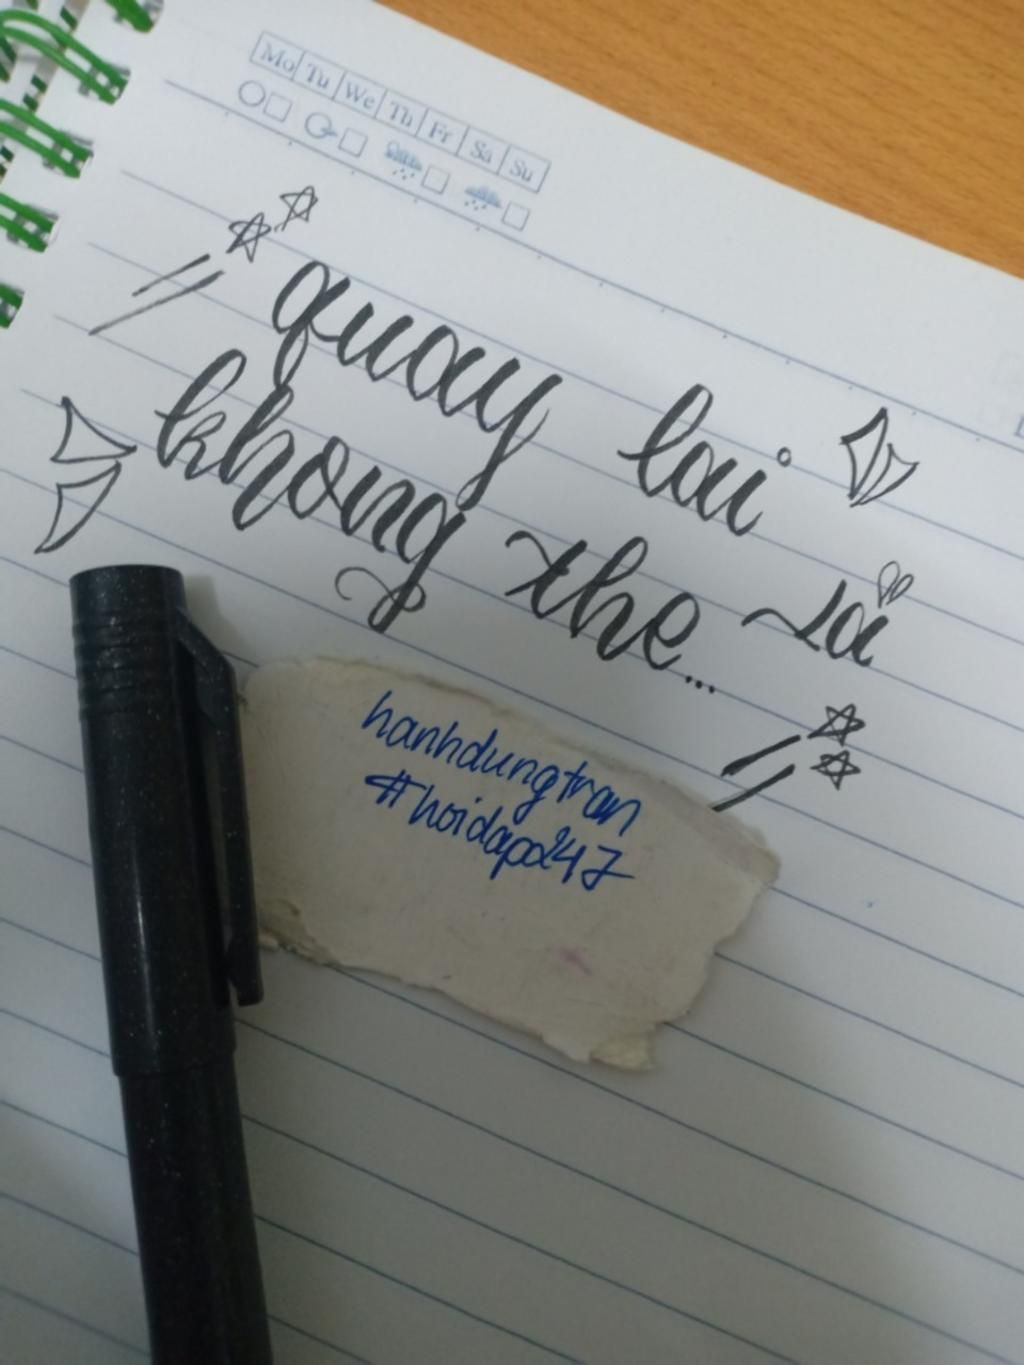 Mo Tu We Th Fr Sa Su
quay lai
khong the...
hanhdungtran
#hoidap247